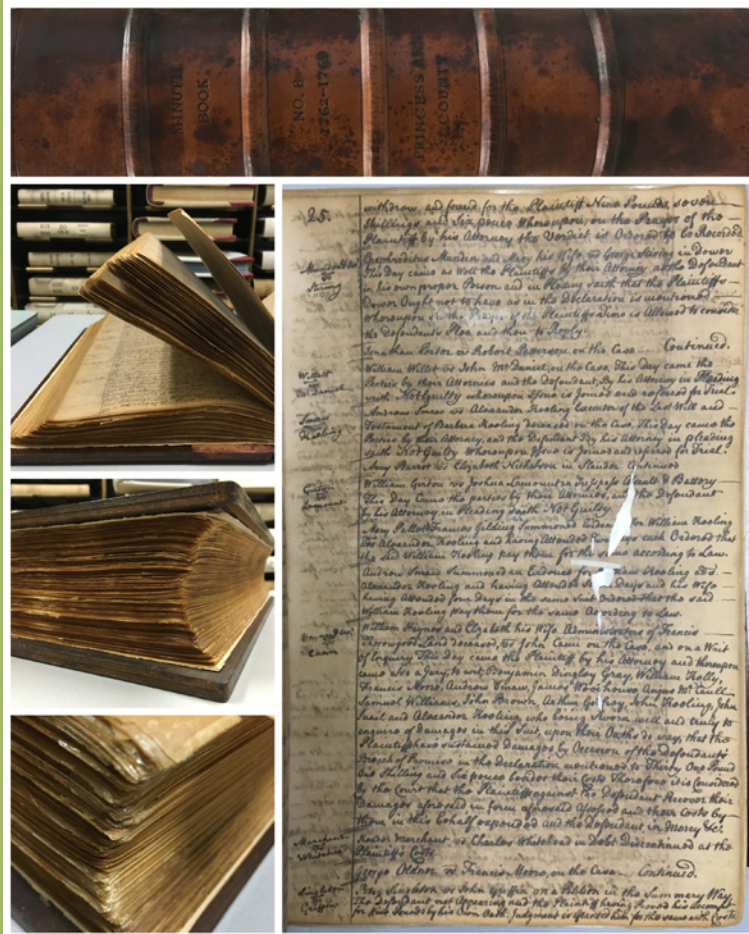 MINUTE
BOOK
NO. 8
1762-1769
PRINCESS ANN
COUNTY
25.
withdrew, and found for the Plaintiff Nine Pounds, seven
Shillings and Six pence Whereupon, on the Prayer of the
Plaintiff by his Attorney the Verdict is Ordered to be Recorded
and Mary his Wife vs George Strong in Dower
This day came as well the Plaintiffs by their Attorney as the Defendant
in his own proper Person and in Pleading saith that the Plaintiffs
Dower Ought not to have as in the Declaration is mentioned
Whereupon on the Prayer of the Plaintiffs time is Allowed to consider
the Defendents Plea and then to Reply.
Jonathan vs Robert Patterson on the Case Continued.
William Willet vs John McDaniel, on the Case, This day came the
Parties by their Attornies and the defendant, By his Attorney in Pleading
saith Not Guilty whereupon Issue is Joined and referred for Trial.
Andrew vs Alexander Keeling Executor of the Last Will and
Testament of Barbara Keeling deceased on the Case, This Day came the
Parties by their Attorney, and the Defendant By his Attorney in pleading
saith Not Guilty Whereupon Issue is Joined and referred for Trial.
Amy Barrot vs Elizabeth Nicholson in Slander Continued
William vs Joshua in Trespass Assault & Battery
This day Came the parties by their Attornies, and the Defendant
by his Attorney in Pleading saith Not Guilty
Mary Francis Gilding Summoned for William Keeling
Alexander Keeling and having Attended each Ordered that
the said William Keeling pay them for the same according to Law.
Andrew Summoned an Evidence for Keeling
Alexander Keeling and having Attended days and his Wife
having Attended four days in the same Suit Ordered that the said
William Keeling pay them for the same According to Law.
William Haynes and Elizabeth his Wife Administrators of Francis
Thorougood Land deceased, vs John on the Case, and on a Writ
of Enquiry This day came the Plaintiff by his Attorney and thereupon
came also a Jury, to wit, Benjamin Dingley Gray, William Kelly,
Francis Moore, Andrew James Woodhouse, Angus
Samuel Williams, John Brown, Arthur Godfrey, John Keeling, John
and Alexander Keeling, who being Sworn well and truly to
enquire of Damages in this Suit, upon their Oaths do say, that the
Plaintiff have sustained Damages by Occasion of the Defendants
Breach of Promise in the Declaration mentioned to Thirty One Pound
Shilling and Six pence besides their Costs Therefore it is Considered
by the Court that the Plaintiff against the Defendant Recover their
Damages aforesaid in form aforesaid Assessed and their Costs by
them in this behalf expended and the Defendant in Mercy &c.
Merchant vs Charles Whitehead in Debt Discontinued at the
Plaintiffs Costs
George Oldner vs Francis Moore, on the Case Continued.
Singleton vs John Griffin on a Petition in the Summary Way
The defendant not Appearing and the Plaintiff having Proved his Accompt
for Pounds by his Own Oath, Judgment is him for the same with Costs
Strong
Willett
vs
McDaniel
Keeling
Merchant
vs
Whitehead
Singleton
vs
Griffin